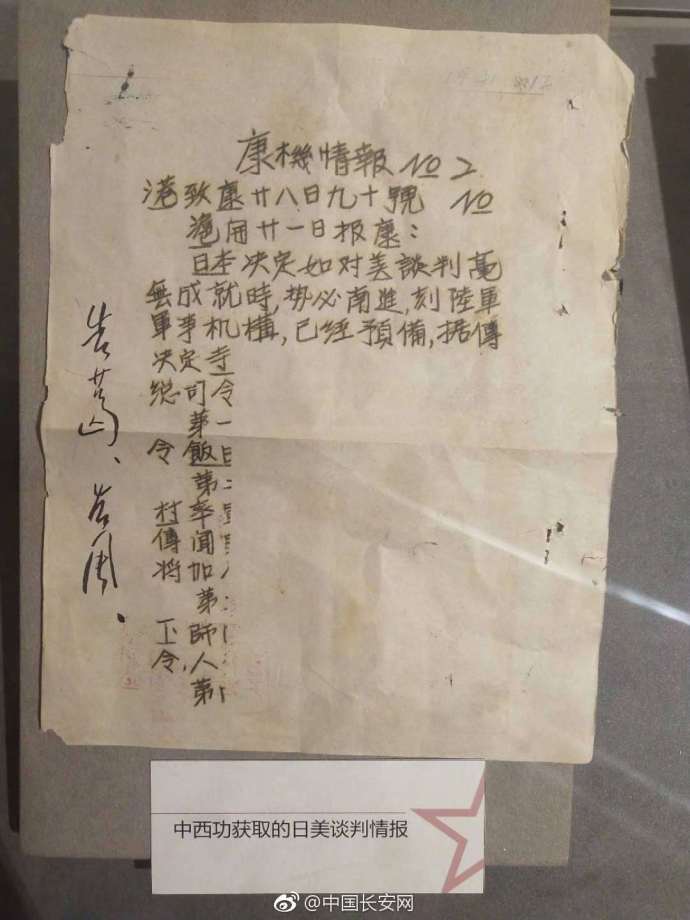 康機情報 No 2
港致康廿八日九十號 No
滬角廿一日报康：
日本决定如对美談判毫
無成就時，势必南進，刻陸軍
軍事机構，已经預備，据傳
决定寺
總司令
第一
令飯田
第二
村率
傳聞
将加
第
玉師
令，人
第
告
中西功获取的日美谈判情报
@中国长安网